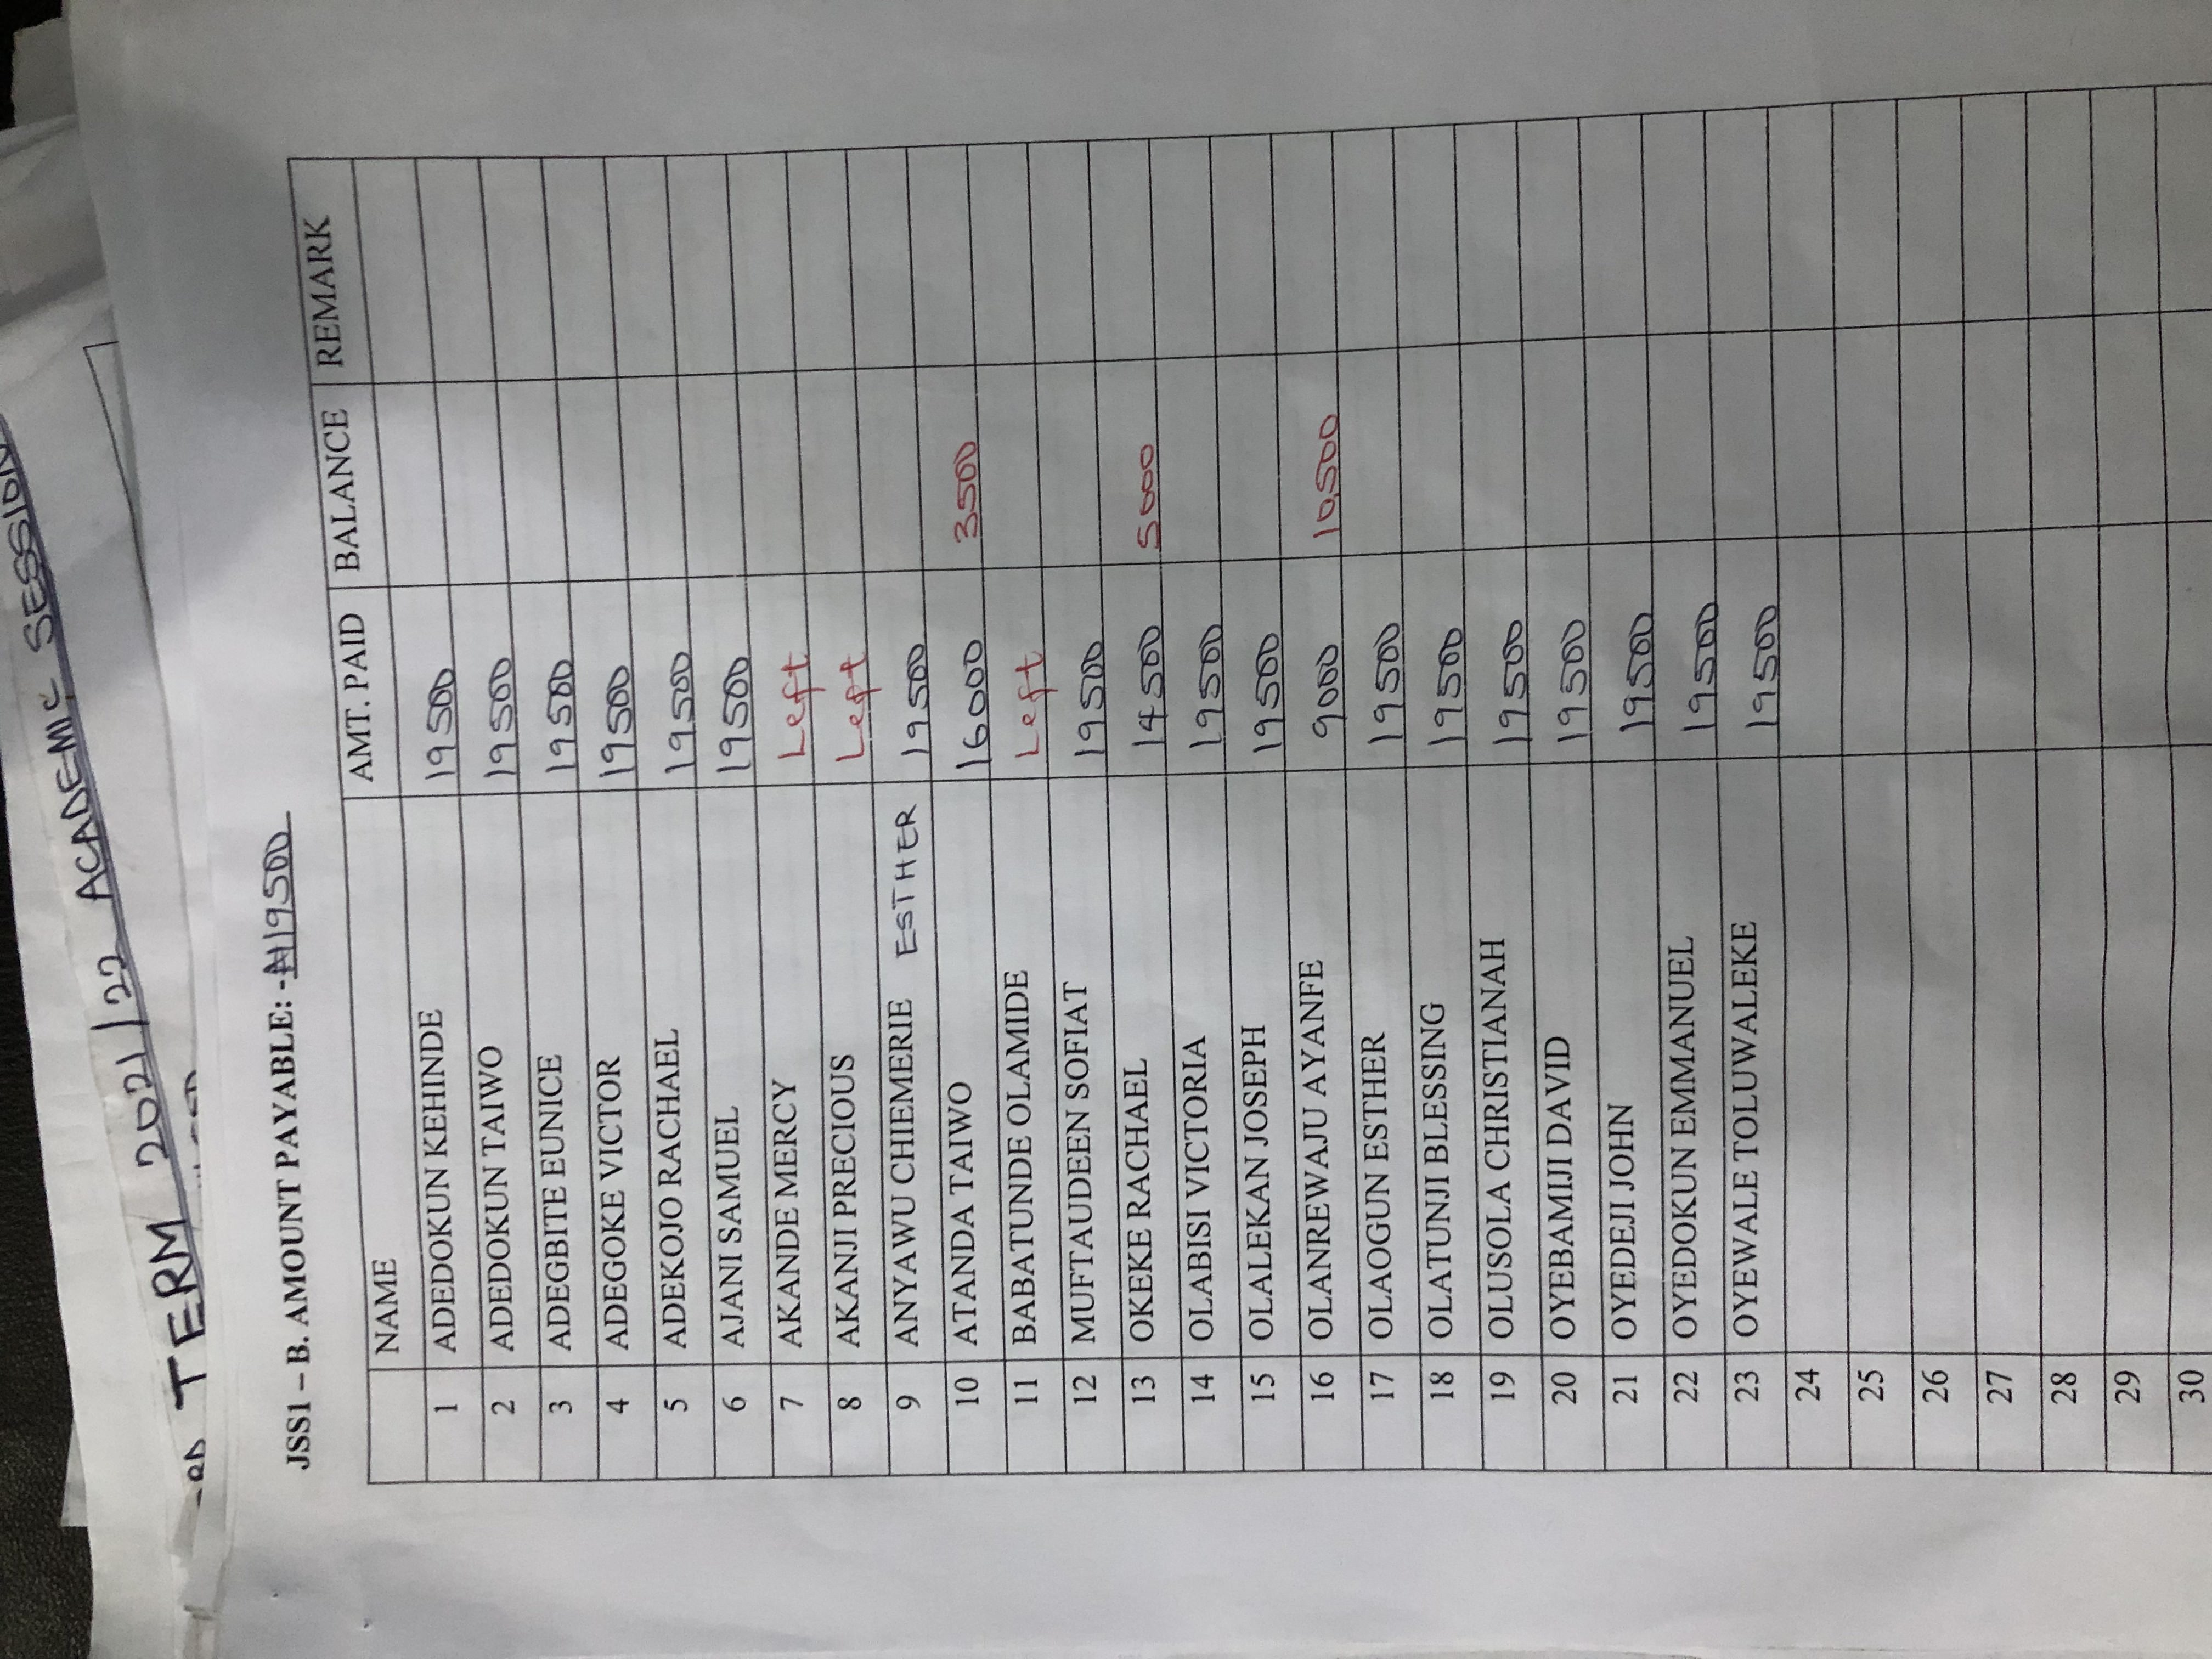 TERM 2021/22 ACADEMIC SESSION
JSS1 – B. AMOUNT PAYABLE: -₦19500
NAME AMT. PAID BALANCE REMARK
1 ADEDOKUN KEHINDE 19500
2 ADEDOKUN TAIWO 19500
3 ADEGBITE EUNICE 19500
4 ADEGOKE VICTOR 19500
5 ADEKOJO RACHAEL 19500
6 AJANI SAMUEL 19500
7 AKANDE MERCY Left
8 AKANJI PRECIOUS Left
9 ANYAWU CHIEMERIE ESTHER 19500
10 ATANDA TAIWO 16000 3500
11 BABATUNDE OLAMIDE Left
12 MUFTAUDEEN SOFIAT 19500
13 OKEKE RACHAEL 14500 5000
14 OLABISI VICTORIA 19500
15 OLALEKAN JOSEPH 19500
16 OLANREWAJU AYANFE 9000 10,500
17 OLAOGUN ESTHER 19500
18 OLATUNJI BLESSING 19500
19 OLUSOLA CHRISTIANAH 19500
20 OYEBAMIJI DAVID 19500
21 OYEDEJI JOHN 19500
22 OYEDOKUN EMMANUEL 19500
23 OYEWALE TOLUWALEKE 19500
24
25
26
27
28
29
30